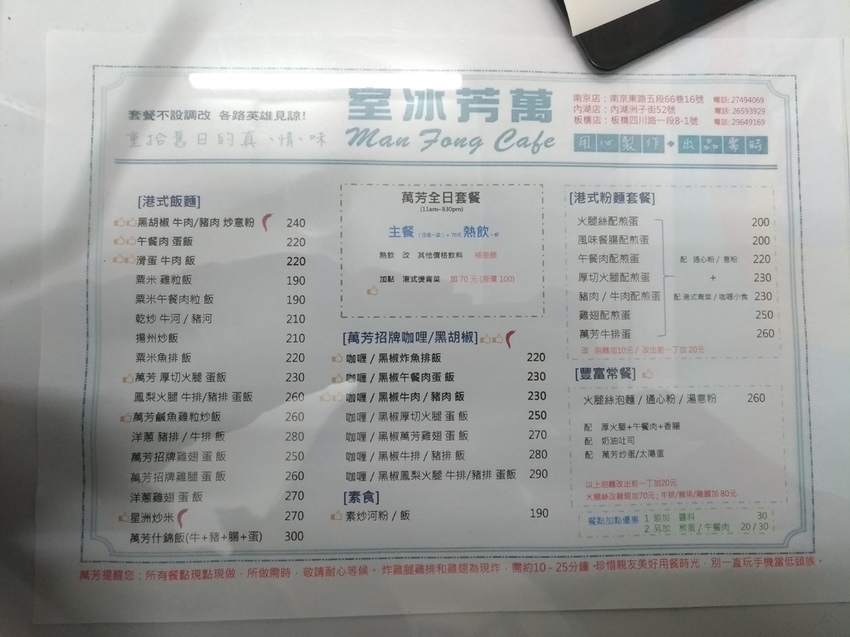 套餐不設調改 各路英雄見諒!
重拾舊日的真、情、味
室冰芳萬
Man Fong Cafe
南京店：南京東路五段66巷16號 電話:27494069
內湖店：內湖洲子街52號 電話:26593929
板橋店：板橋四川路一段8-1號 電話:29649169
用心製作◆出品需時
[港式飯麵]
黑胡椒 牛肉/豬肉 炒意粉 240
午餐肉 蛋飯 220
滑蛋 牛肉 飯 220
粟米 雞粒飯 190
粟米午餐肉粒 飯 190
乾炒 牛河 / 豬河 210
揚州炒飯 210
粟米魚排 飯 220
萬芳 厚切火腿 蛋飯 230
鳳梨火腿 牛排/豬排 蛋飯 260
萬芳鹹魚雞粒炒飯 260
洋蔥 豬排 / 牛排 飯 280
萬芳招牌雞翅 蛋飯 250
萬芳招牌雞腿 蛋 飯 260
洋蔥雞翅 蛋 飯 270
星洲炒米 270
萬芳什錦飯(牛+豬+腸+蛋) 300
萬芳全日套餐
(11am~830pm)
主餐 (任選一款) + 70元 熱飲一杯
熱飲 改 其他價格飲料 補差額
加點 港式燙青菜 加 70 元 (原價 100)
[萬芳招牌咖哩/黑胡椒]
咖喱 / 黑椒炸魚排飯 220
咖喱 / 黑椒午餐肉蛋飯 230
咖喱 / 黑椒牛肉 / 豬肉 飯 230
咖喱 / 黑椒厚切火腿 蛋 飯 250
咖喱 / 黑椒萬芳雞翅 蛋飯 270
咖喱 / 黑椒牛排 / 豬排 飯 280
咖喱 / 黑椒鳳梨火腿 牛排/豬排 蛋飯 290
[素食]
素炒河粉 / 飯 190
[港式粉麵套餐]
火腿絲配煎蛋 200
風味餐腸配煎蛋 200
午餐肉配煎蛋 配 通心粉 / 意粉 220
厚切火腿配煎蛋 + 230
豬肉 / 牛肉配煎蛋 配 港式青菜 / 咖喱小食 230
雞翅配煎蛋 250
萬芳牛排蛋 260
改 泡麵加10元 / 改出前一丁加 20元
[豐富常餐]
火腿絲泡麵 / 通心粉 / 湯意粉 260
配 厚火腿+午餐肉+香腸
配 奶油吐司
配 萬芳炒蛋/太陽蛋
以上泡麵改出前一丁加20元
火腿絲改雞翅加70元 ; 牛排/豬排/雞腿加 80元
餐點加點優惠 1 追加 醬料 30
2 另加 煎蛋 / 午餐肉 20 / 30
萬芳提醒您：所有餐點現點現做，所做需時，敬請耐心等候。 炸雞腿雞排和雞翅為現炸，需約10－25分鐘 ·珍惜親友美好用餐時光，別一直玩手機當低頭族。